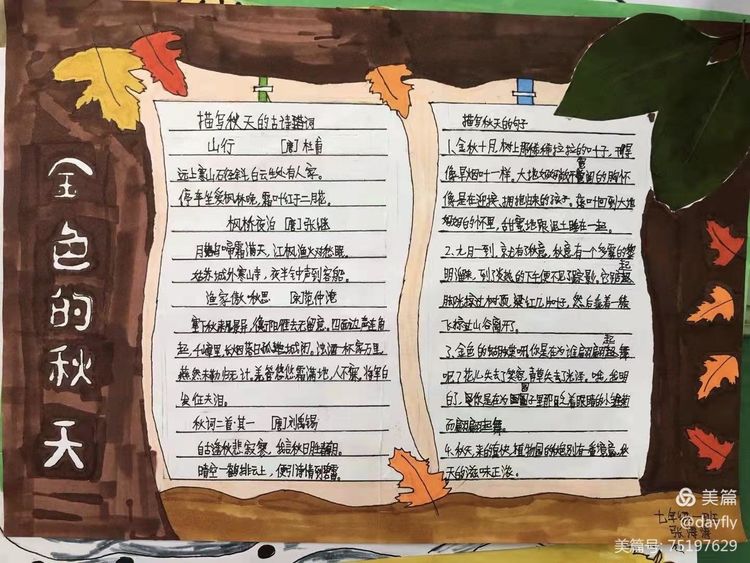 金色的秋天
描写秋天的古诗词
山行 [唐]杜甫
远上寒山石径斜,白云生处有人家。
停车坐爱枫林晚,霜叶红于二月花。
枫桥夜泊 [唐]张继
月落乌啼霜满天,江枫渔火对愁眠。
姑苏城外寒山寺,夜半钟声到客船。
渔家傲·秋思 [宋]范仲淹
塞下秋来风景异,衡阳雁去无留意。四面边声连角
起,千嶂里,长烟落日孤城闭。浊酒一杯家万里,
燕然未勒归无计。羌管悠悠霜满地,人不寐,将军白
发征夫泪。
秋词二首·其一 [唐]刘禹锡
自古逢秋悲寂寥,我言秋日胜春朝。
晴空一鹤排云上,便引诗情到碧霄。
描写秋天的句子
1.金秋十月,树上那稀稀拉拉的叶子,
像旱烟叶一样。大地的胸怀
像是在迎接、拥抱归来的孩子。落叶回到大地
妈妈的怀里,甜蜜地跟泥土睡在一起。
2.九月一到,就有了秋意,秋意在一个多雾的黎
明溜来,到了炎热的下午便不见踪影。它踮起
脚尖掠过树顶,染红几片叶子,然后乘着一簇
飞掠过山谷离开。
3.金色的蝴蝶呀,你是在为谁翩翩起舞
呢?花儿失去了笑容,青草失去了光泽。哦,我明
白了,
而翩翩起舞。
4.秋天,来的真快,植物园的秋色别有一番滋意。秋
天的滋味正浓。
七年级 班
美篇
@dayfly
美篇号: 75197629